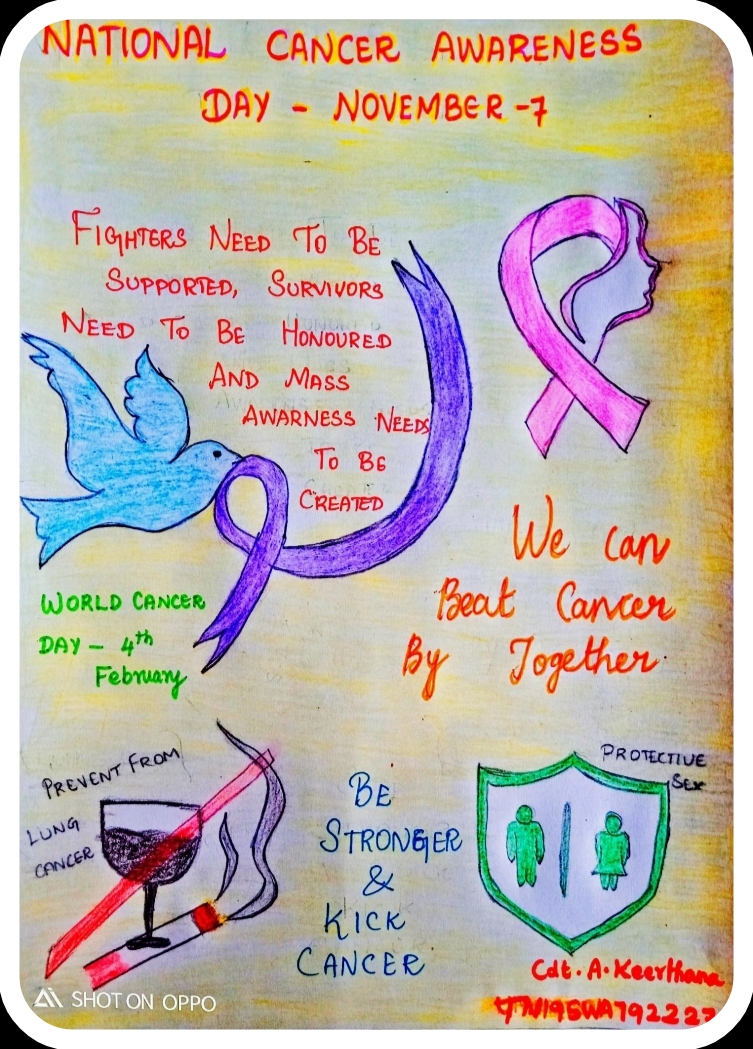 NATIONAL CANCER AWARENESS
DAY - NOVEMBER -7
FIGHTERS NEED TO BE
SUPPORTED, SURVIVORS
NEED TO BE HONOURED
AND MASS
AWARNESS NEEDS
TO BE
CREATED
WORLD CANCER
DAY - 4th
February
We can
Beat Cancer
By Together
PREVENT FROM
LUNG
CANCER
BE
STRONGER
&
KICK
CANCER
PROTECTIVE
SEX
Cdt. A. Keerthana
SHOT ON OPPO